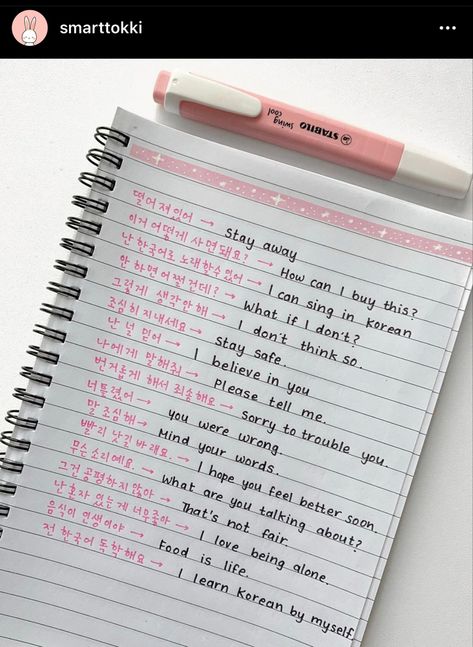 smarttokki
STABILO
swing cool
떨어져있어 → Stay away
이거 어떻게 사면 돼요? → How can I buy this?
난 한국어로 노래할 수 있어 → I can sing in Korean
안 하면 어쩔건데? → What if I don't?
그렇게 생각 안 해 → I don't think so.
조심히 지내세요 → Stay safe.
난 널 믿어 → I believe in you
나에게 말해줘 → Please tell me.
번거롭게 해서 죄송해요 → Sorry to trouble you.
너 틀렸어 → you were wrong.
말 조심해 → Mind your words.
빨리 낫길 바래요. → I hope you feel better soon.
무슨 소리예요. → What are you talking about?
그건 공평하지 않아 → That's not fair.
난 혼자 있는 게 너무 좋아 → I love being alone.
음식이 인생이야 → Food is life.
전 한국어 독학해요 → I learn Korean by myself.